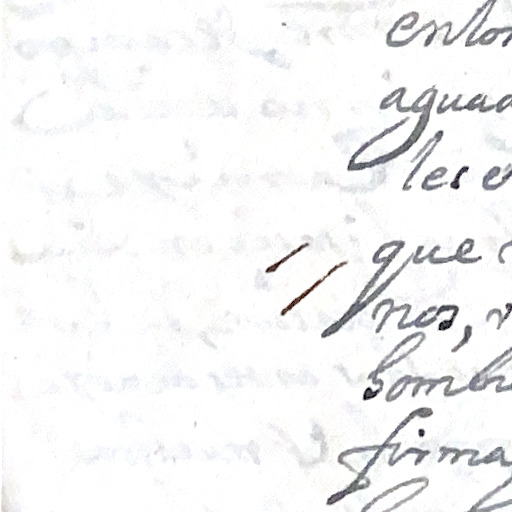 enton
aguad
les e
que
nos,
hombr
firma